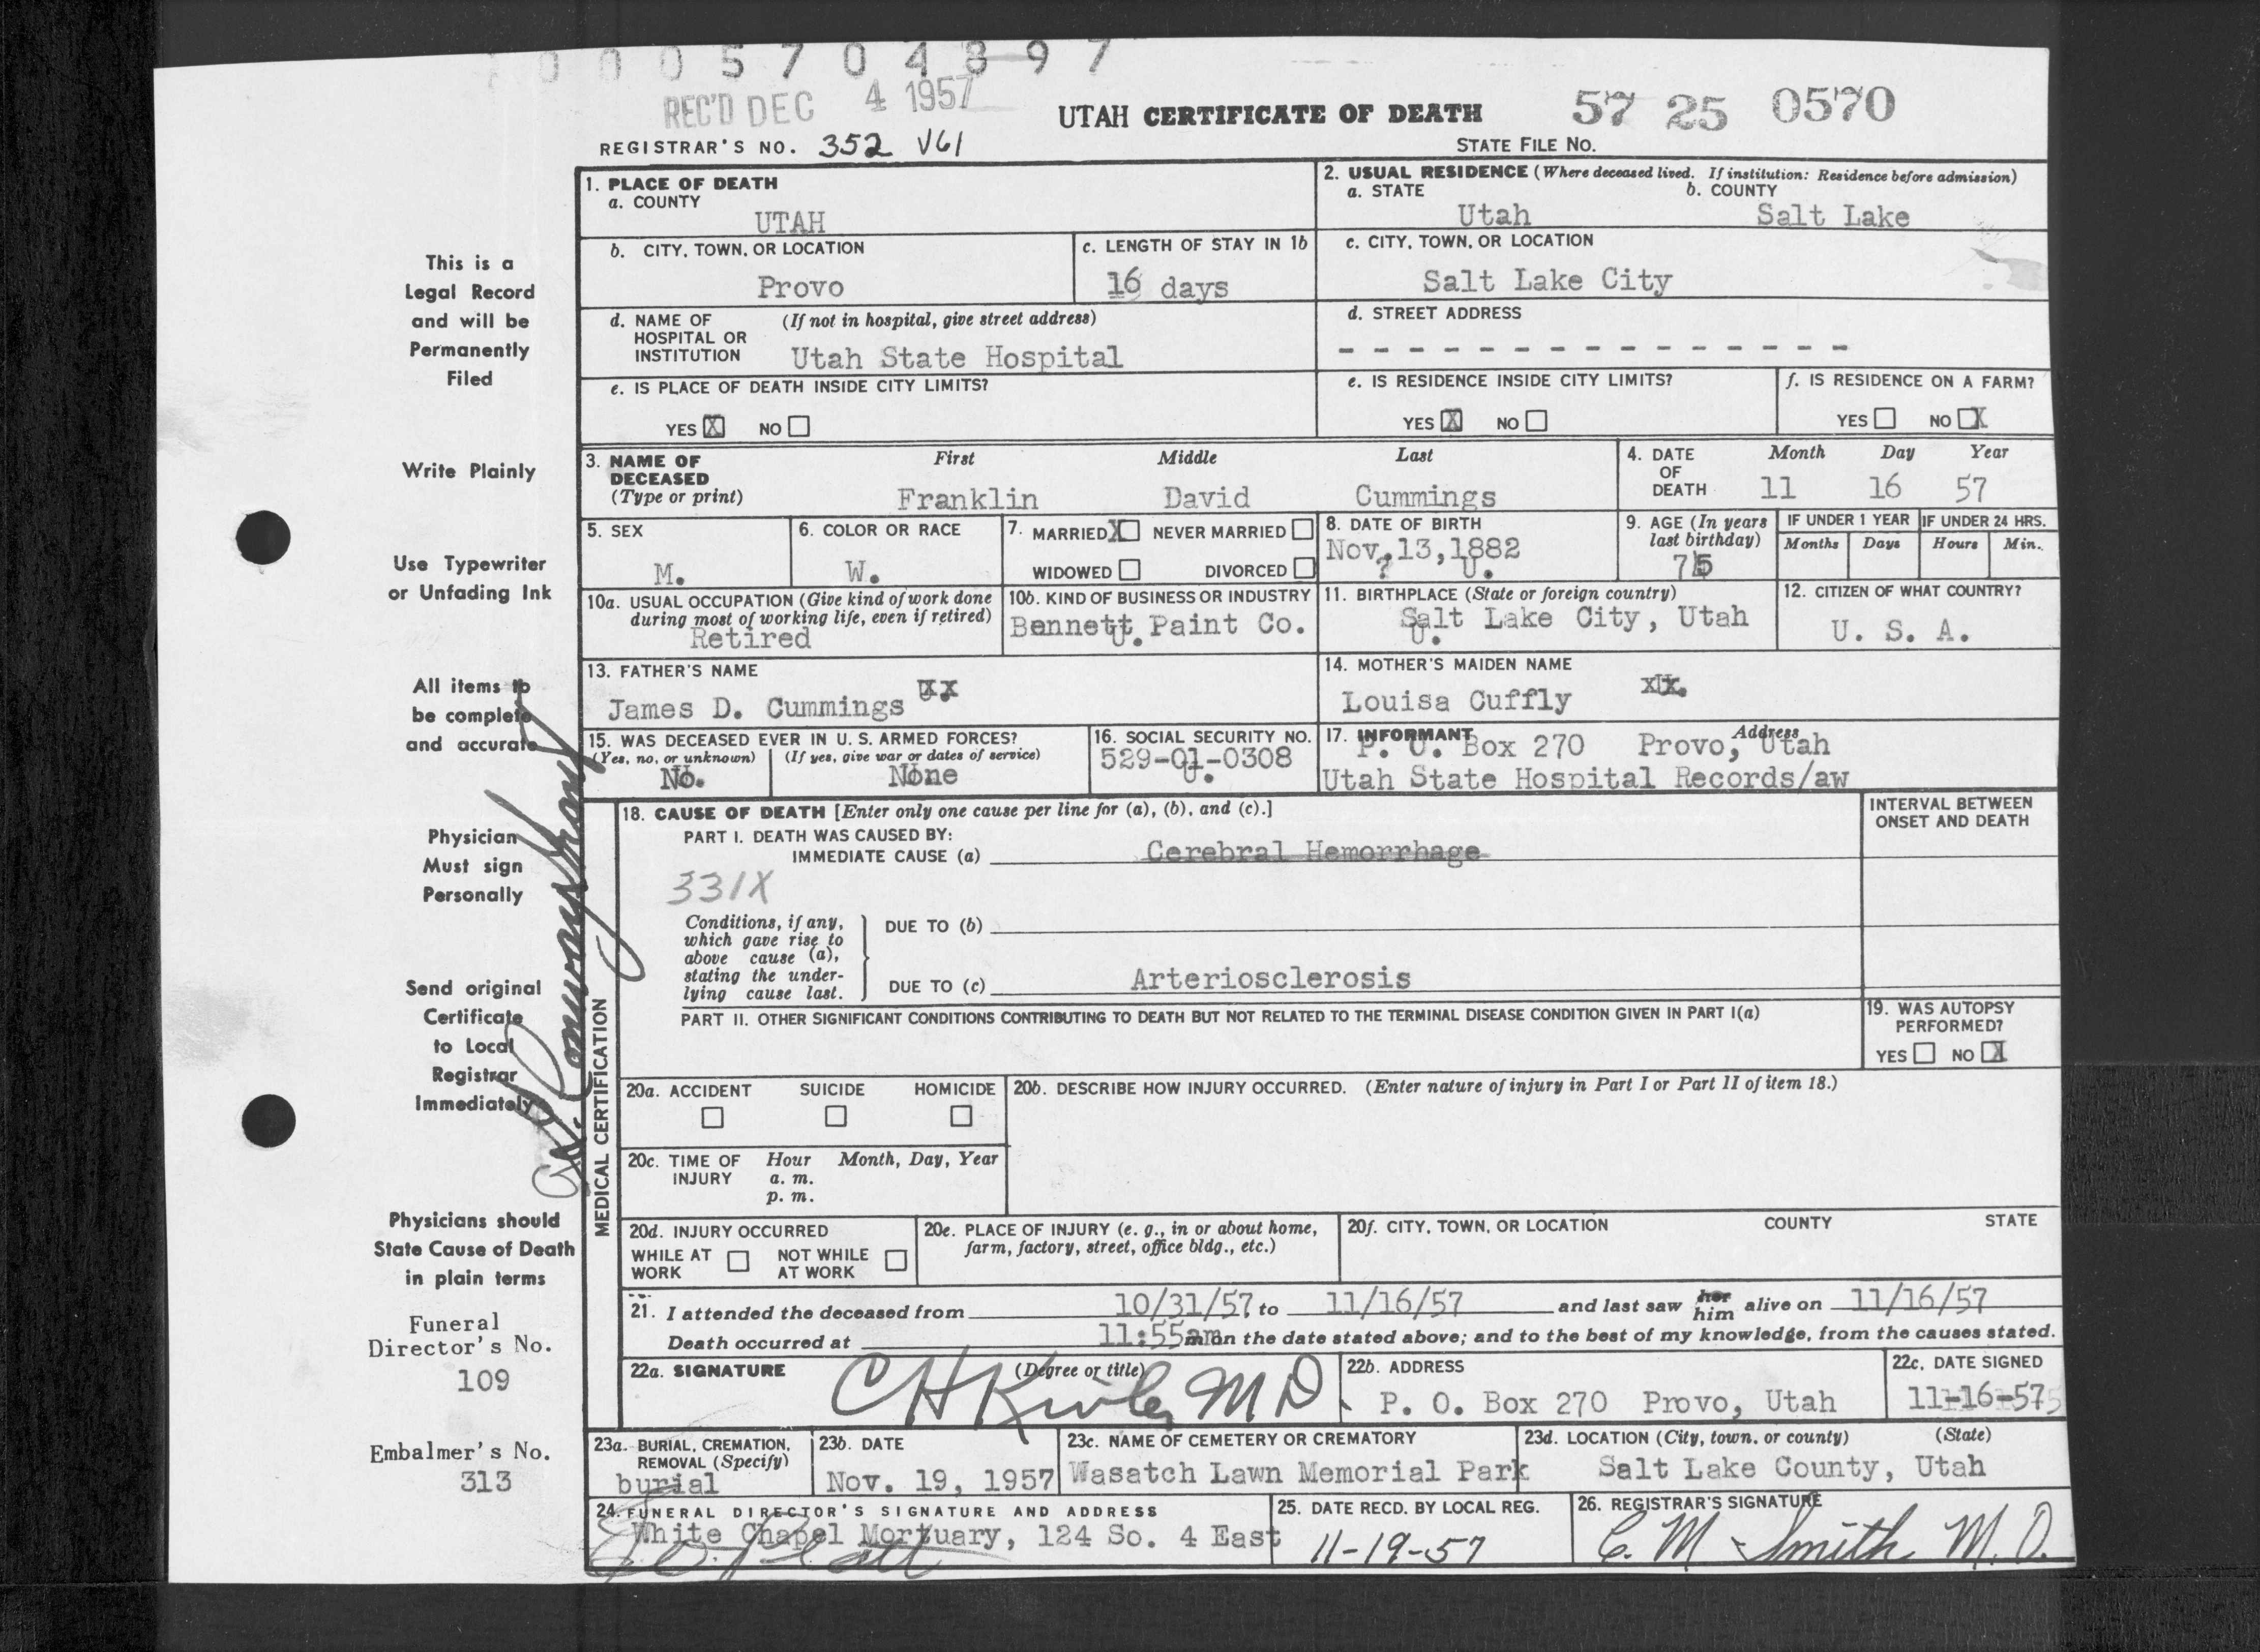 0 0 0 5 7 0 4 8 9 7
REC'D DEC 4 1957
UTAH CERTIFICATE OF DEATH 57 25 0570
REGISTRAR'S NO. 352 V61 STATE FILE NO.
1. PLACE OF DEATH
a. COUNTY
UTAH
2. USUAL RESIDENCE (Where deceased lived. If institution: Residence before admission)
a. STATE b. COUNTY
Utah Salt Lake
b. CITY, TOWN, OR LOCATION
Provo
c. LENGTH OF STAY IN 1b
16 days
c. CITY, TOWN, OR LOCATION
Salt Lake City
d. NAME OF (If not in hospital, give street address)
HOSPITAL OR
INSTITUTION Utah State Hospital
d. STREET ADDRESS
- - - - - - - - - - - - - - -
e. IS PLACE OF DEATH INSIDE CITY LIMITS?
YES X NO
e. IS RESIDENCE INSIDE CITY LIMITS?
YES X NO
f. IS RESIDENCE ON A FARM?
YES NO X
3. NAME OF First Middle Last
DECEASED
(Type or print) Franklin David Cummings
4. DATE Month Day Year
OF
DEATH 11 16 57
5. SEX
M.
6. COLOR OR RACE
W.
7. MARRIED X NEVER MARRIED
WIDOWED DIVORCED
8. DATE OF BIRTH
Nov.13,1882
? U.
9. AGE (In years
last birthday)
75
IF UNDER 1 YEAR
Months Days
IF UNDER 24 HRS.
Hours Min.
10a. USUAL OCCUPATION (Give kind of work done
during most of working life, even if retired)
Retired
10b. KIND OF BUSINESS OR INDUSTRY
Bennett Paint Co.
U.
11. BIRTHPLACE (State or foreign country)
Salt Lake City, Utah
U.
12. CITIZEN OF WHAT COUNTRY?
U. S. A.
13. FATHER'S NAME
James D. Cummings
14. MOTHER'S MAIDEN NAME
Louisa Cuffly
15. WAS DECEASED EVER IN U. S. ARMED FORCES?
(Yes, no, or unknown) (If yes, give war or dates of service)
No. None
16. SOCIAL SECURITY NO.
529-01-0308
U.
17. INFORMANT Address
P. O. Box 270 Provo, Utah
Utah State Hospital Records/aw
MEDICAL CERTIFICATION
18. CAUSE OF DEATH [Enter only one cause per line for (a), (b), and (c).]
PART I. DEATH WAS CAUSED BY:
IMMEDIATE CAUSE (a) Cerebral Hemorrhage
331X
INTERVAL BETWEEN
ONSET AND DEATH
Conditions, if any,
which gave rise to
above cause (a),
stating the under-
lying cause last.
DUE TO (b)
DUE TO (c) Arteriosclerosis
PART II. OTHER SIGNIFICANT CONDITIONS CONTRIBUTING TO DEATH BUT NOT RELATED TO THE TERMINAL DISEASE CONDITION GIVEN IN PART I(a)
19. WAS AUTOPSY
PERFORMED?
YES NO X
20a. ACCIDENT SUICIDE HOMICIDE
20b. DESCRIBE HOW INJURY OCCURRED. (Enter nature of injury in Part I or Part II of item 18.)
20c. TIME OF Hour Month, Day, Year
INJURY a. m.
p. m.
20d. INJURY OCCURRED
WHILE AT NOT WHILE
WORK AT WORK
20e. PLACE OF INJURY (e. g., in or about home,
farm, factory, street, office bldg., etc.)
20f. CITY, TOWN, OR LOCATION COUNTY STATE
21. I attended the deceased from 10/31/57 to 11/16/57 and last saw her him alive on 11/16/57
Death occurred at 11:55am on the date stated above; and to the best of my knowledge, from the causes stated.
22a. SIGNATURE (Degree or title)
C H M D
22b. ADDRESS
P. O. Box 270 Provo, Utah
22c. DATE SIGNED
11-16-57
23a. BURIAL, CREMATION,
REMOVAL (Specify)
burial
23b. DATE
Nov. 19, 1957
23c. NAME OF CEMETERY OR CREMATORY
Wasatch Lawn Memorial Park
23d. LOCATION (City, town, or county) (State)
Salt Lake County, Utah
24. FUNERAL DIRECTOR'S SIGNATURE AND ADDRESS
White Chapel Mortuary, 124 So. 4 East
25. DATE RECD. BY LOCAL REG.
11-19-57
26. REGISTRAR'S SIGNATURE
C. M Smith M. D.
This is a
Legal Record
and will be
Permanently
Filed
Write Plainly
Use Typewriter
or Unfading Ink
All items to
be complete
and accurate
Physician
Must sign
Personally
Send original
Certificate
to Local
Registrar
Immediately
Physicians should
State Cause of Death
in plain terms
Funeral
Director's No.
109
Embalmer's No.
313